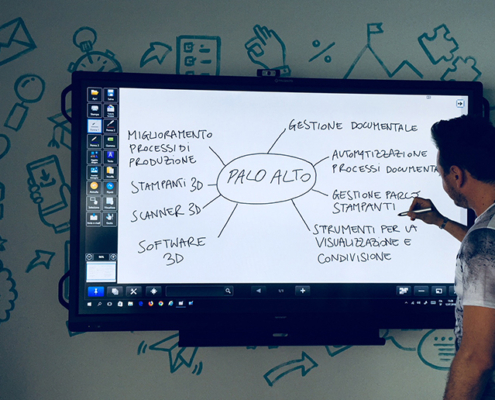 MIGLIORAMENTO
PROCESSI DI
PRODUZIONE
STAMPANTI 3D
SCANNER 3D
SOFTWARE
3D
PALO ALTO
GESTIONE DOCUMENTALE
AUTOMATIZZAZIONE
PROCESSI DOCUMENTA
GESTIONE PARCO
STAMPANTI
STRUMENTI PER LA
VISUALIZZAZIONE E
CONDIVISIONE